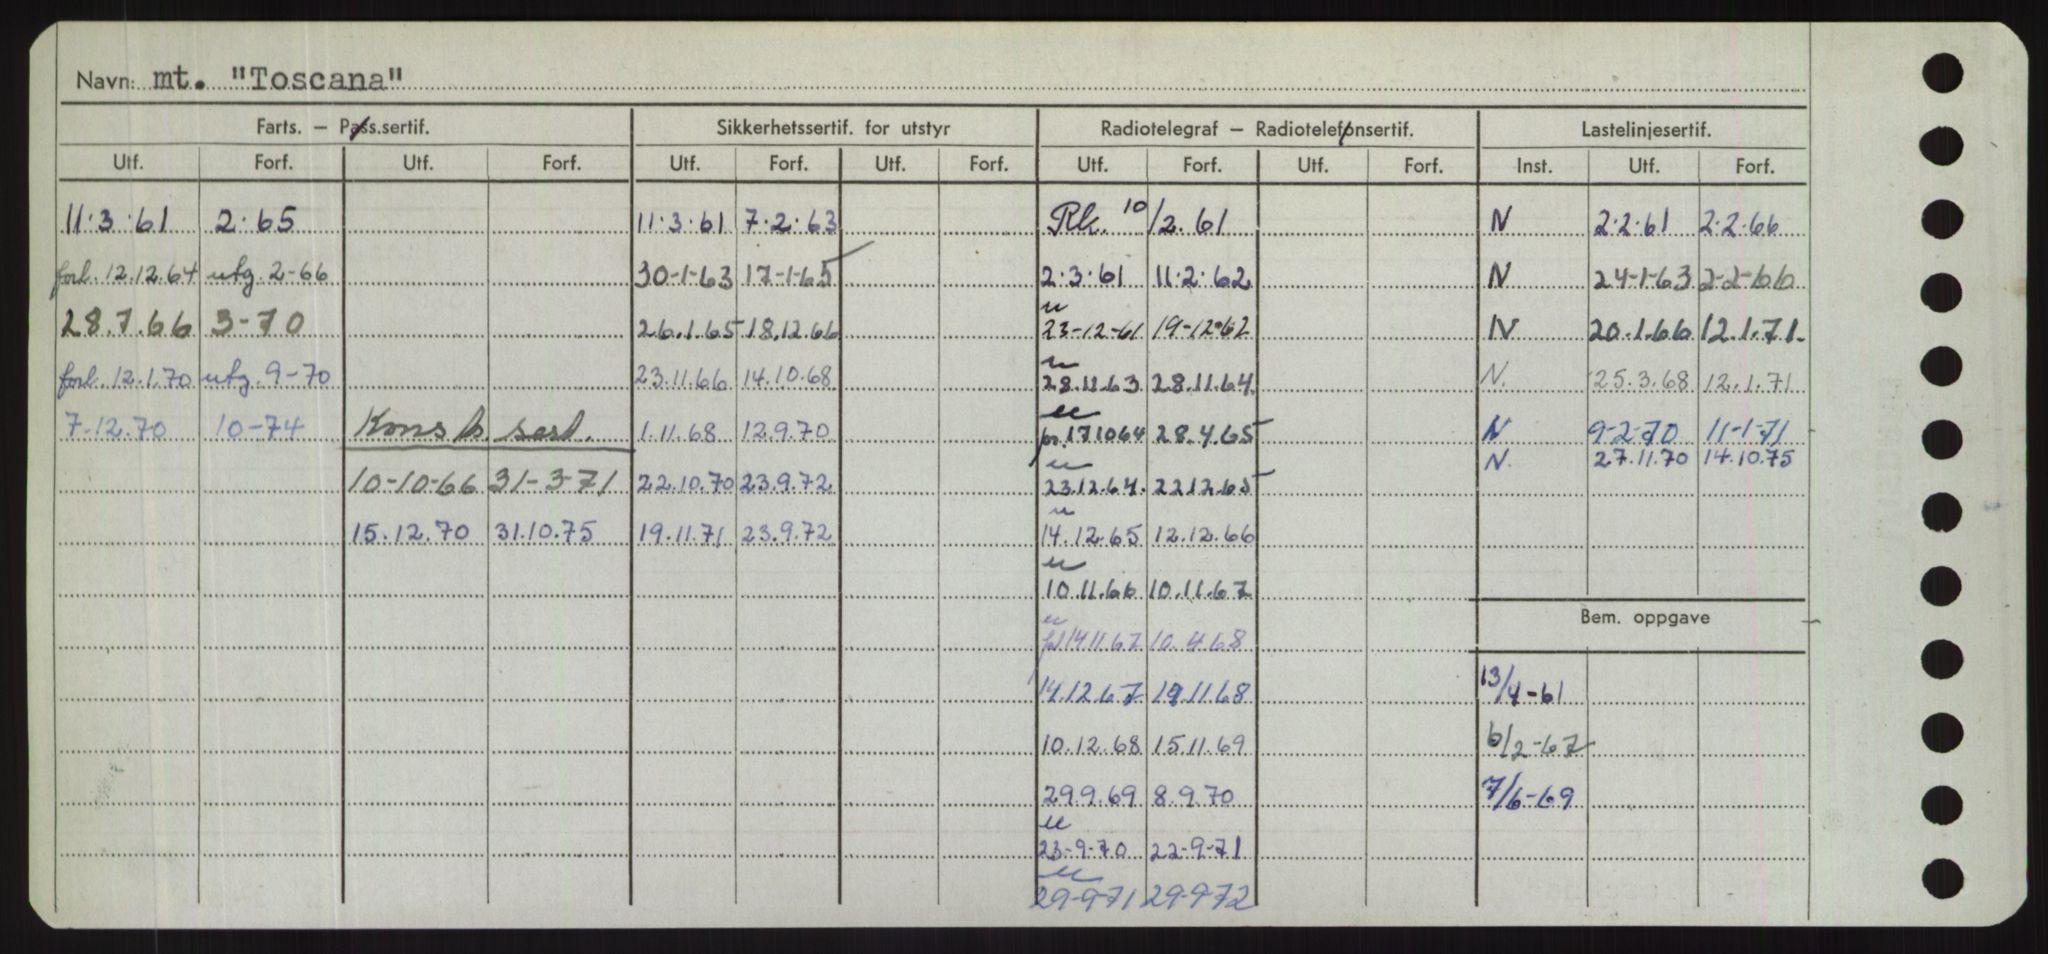 Navn: mt. "Toscana"
Farts. – Pass.sertif. Sikkerhetssertif. for utstyr Radiotelegraf – Radiotelefonsertif. Lastelinjesertif.
Utf. Forf. Utf. Forf. Utf. Forf. Utf. Forf. Utf. Forf. Utf. Forf. Inst. Utf. Forf.
11.3.61 2.65 11.3.61 7.2.63 Rk. 10/2.61 N 2.2.61 2.2.66
forl. 12.12.64 utg. 2-66 30-1-63 17-1-65 2.3.61 11.2.62 N 24-1-63 2-2-66
28.7.66 3-70 26.1.65 18.12.66 23-12-61 19-12-62 N 20.1.66 12.1.71.
forl. 12.1.70 utg. 9-70 23.11.66 14.10.68 28.11.63 28.11.64. N. 25.3.68 12.1.71
7.12.70 10-74 Konstr. sert. 1.11.68 12.9.70 171064 28.4.65 N 9-2-70 11-1-71
N. 27.11.70 14.10.75
10-10-66 31-3-71 22.10.70 23.9.72 23.12.64. 22.12.65
15.12.70 31.10.75 19.11.71 23.9.72 14.12.65 12.12.66
10.11.66 10.11.67
Bem. oppgave
14.11.67 10.4.68
14.12.67 19.11.68 13/4-61
10.12.68 15.11.69 6/2-67
29.9.69 8.9.70 7/6-69
23-9-70 22-9-71
29-9-71 29-9-72